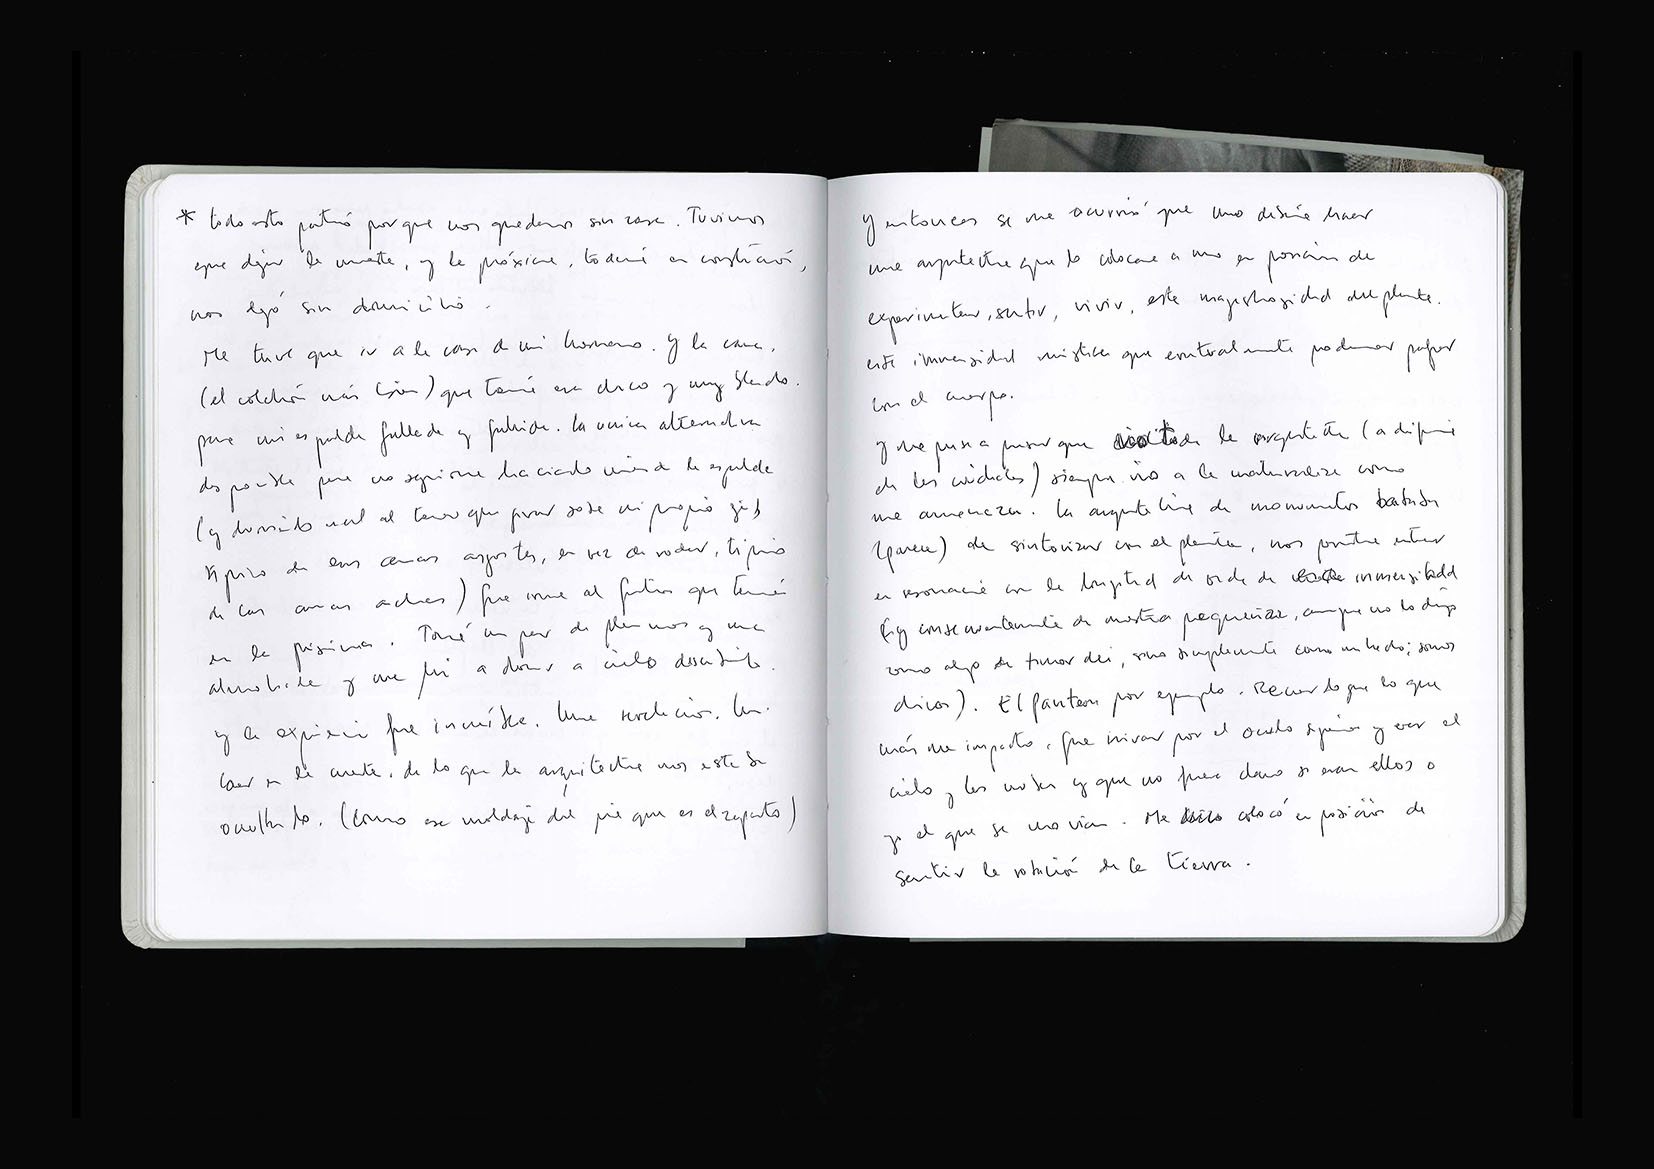 * todo esto partió porque nos quedamos sin casa. Tuvimos
que dejar la nuestra, y la próxima, todavía en construcción,
nos dejó sin domicilio.
Me tuve que ir a la casa de mi hermano. Y la cama,
(el colchón más bien) que tenía era chico y muy blando.
para mi espalda fallada y
La única alternativa
posible para no seguirme haciendo mierda la espalda
(y durmiendo mal al tener que girar sobre mi propio eje,
típico de las camas angostas, en vez de rodar, típico
de las camas anchas) fue irme al que tenía
en la piscina. Tomé un par de plumones y una
almohada y me fui a dormir a cielo descubierto.
y la experiencia fue increíble. Una revelación. Un
caer en la cuenta, de lo que la arquitectura nos estaba
ocultando. (como ese moldaje del pie que es el zapato)
y entonces se me ocurrió que uno debería hacer
una arquitectura que lo colocara a uno en posición de
experimentar, sentir, vivir, esta majestuosidad del planeta.
esta inmensidad mística que eventualmente podemos palpar
con el cuerpo.
y me puse a pensar que toda la arquitectura (a diferencia
de las ciudades) siempre vio a la naturaleza como
una amenaza. La arquitectura de monumentos trataba
(parece) de sintonizar con el planeta, nos permite entrar
en resonancia con la longitud de onda de inmensidad
(y consecuentemente de nuestra pequeñez, aunque no lo digo
como algo de timor dei, sino simplemente como un hecho; somos
chicos). El Panteon por ejemplo. Recuerdo que lo que
más me impactó, fue mirar por el óculo superior y ver el
cielo y las nubes y que no fuera claro si eran ellos o
yo el que se movían. Me colocó en posición de
sentir la rotación de la tierra.